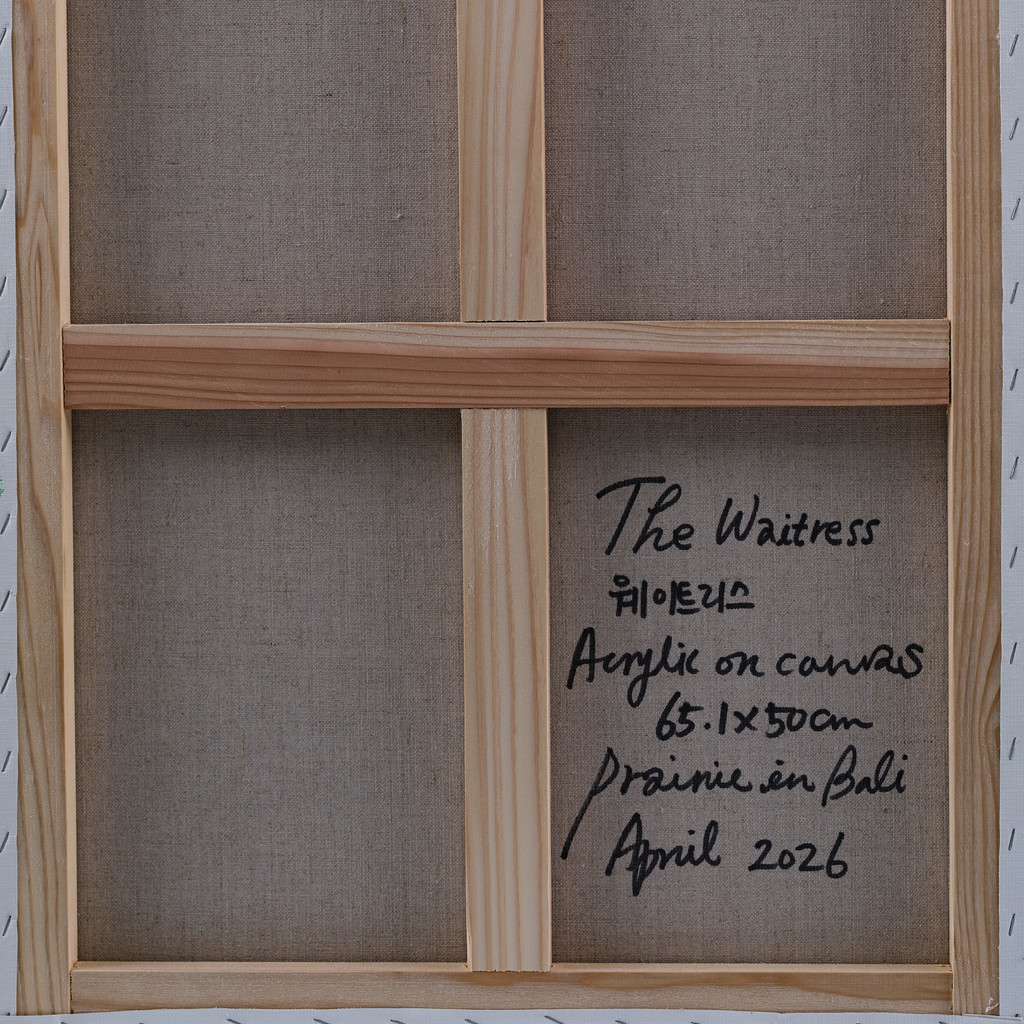 The Waitress
웨이트리스
Acrylic on canvas
65.1x50cm
Prairie in Bali
April 2026